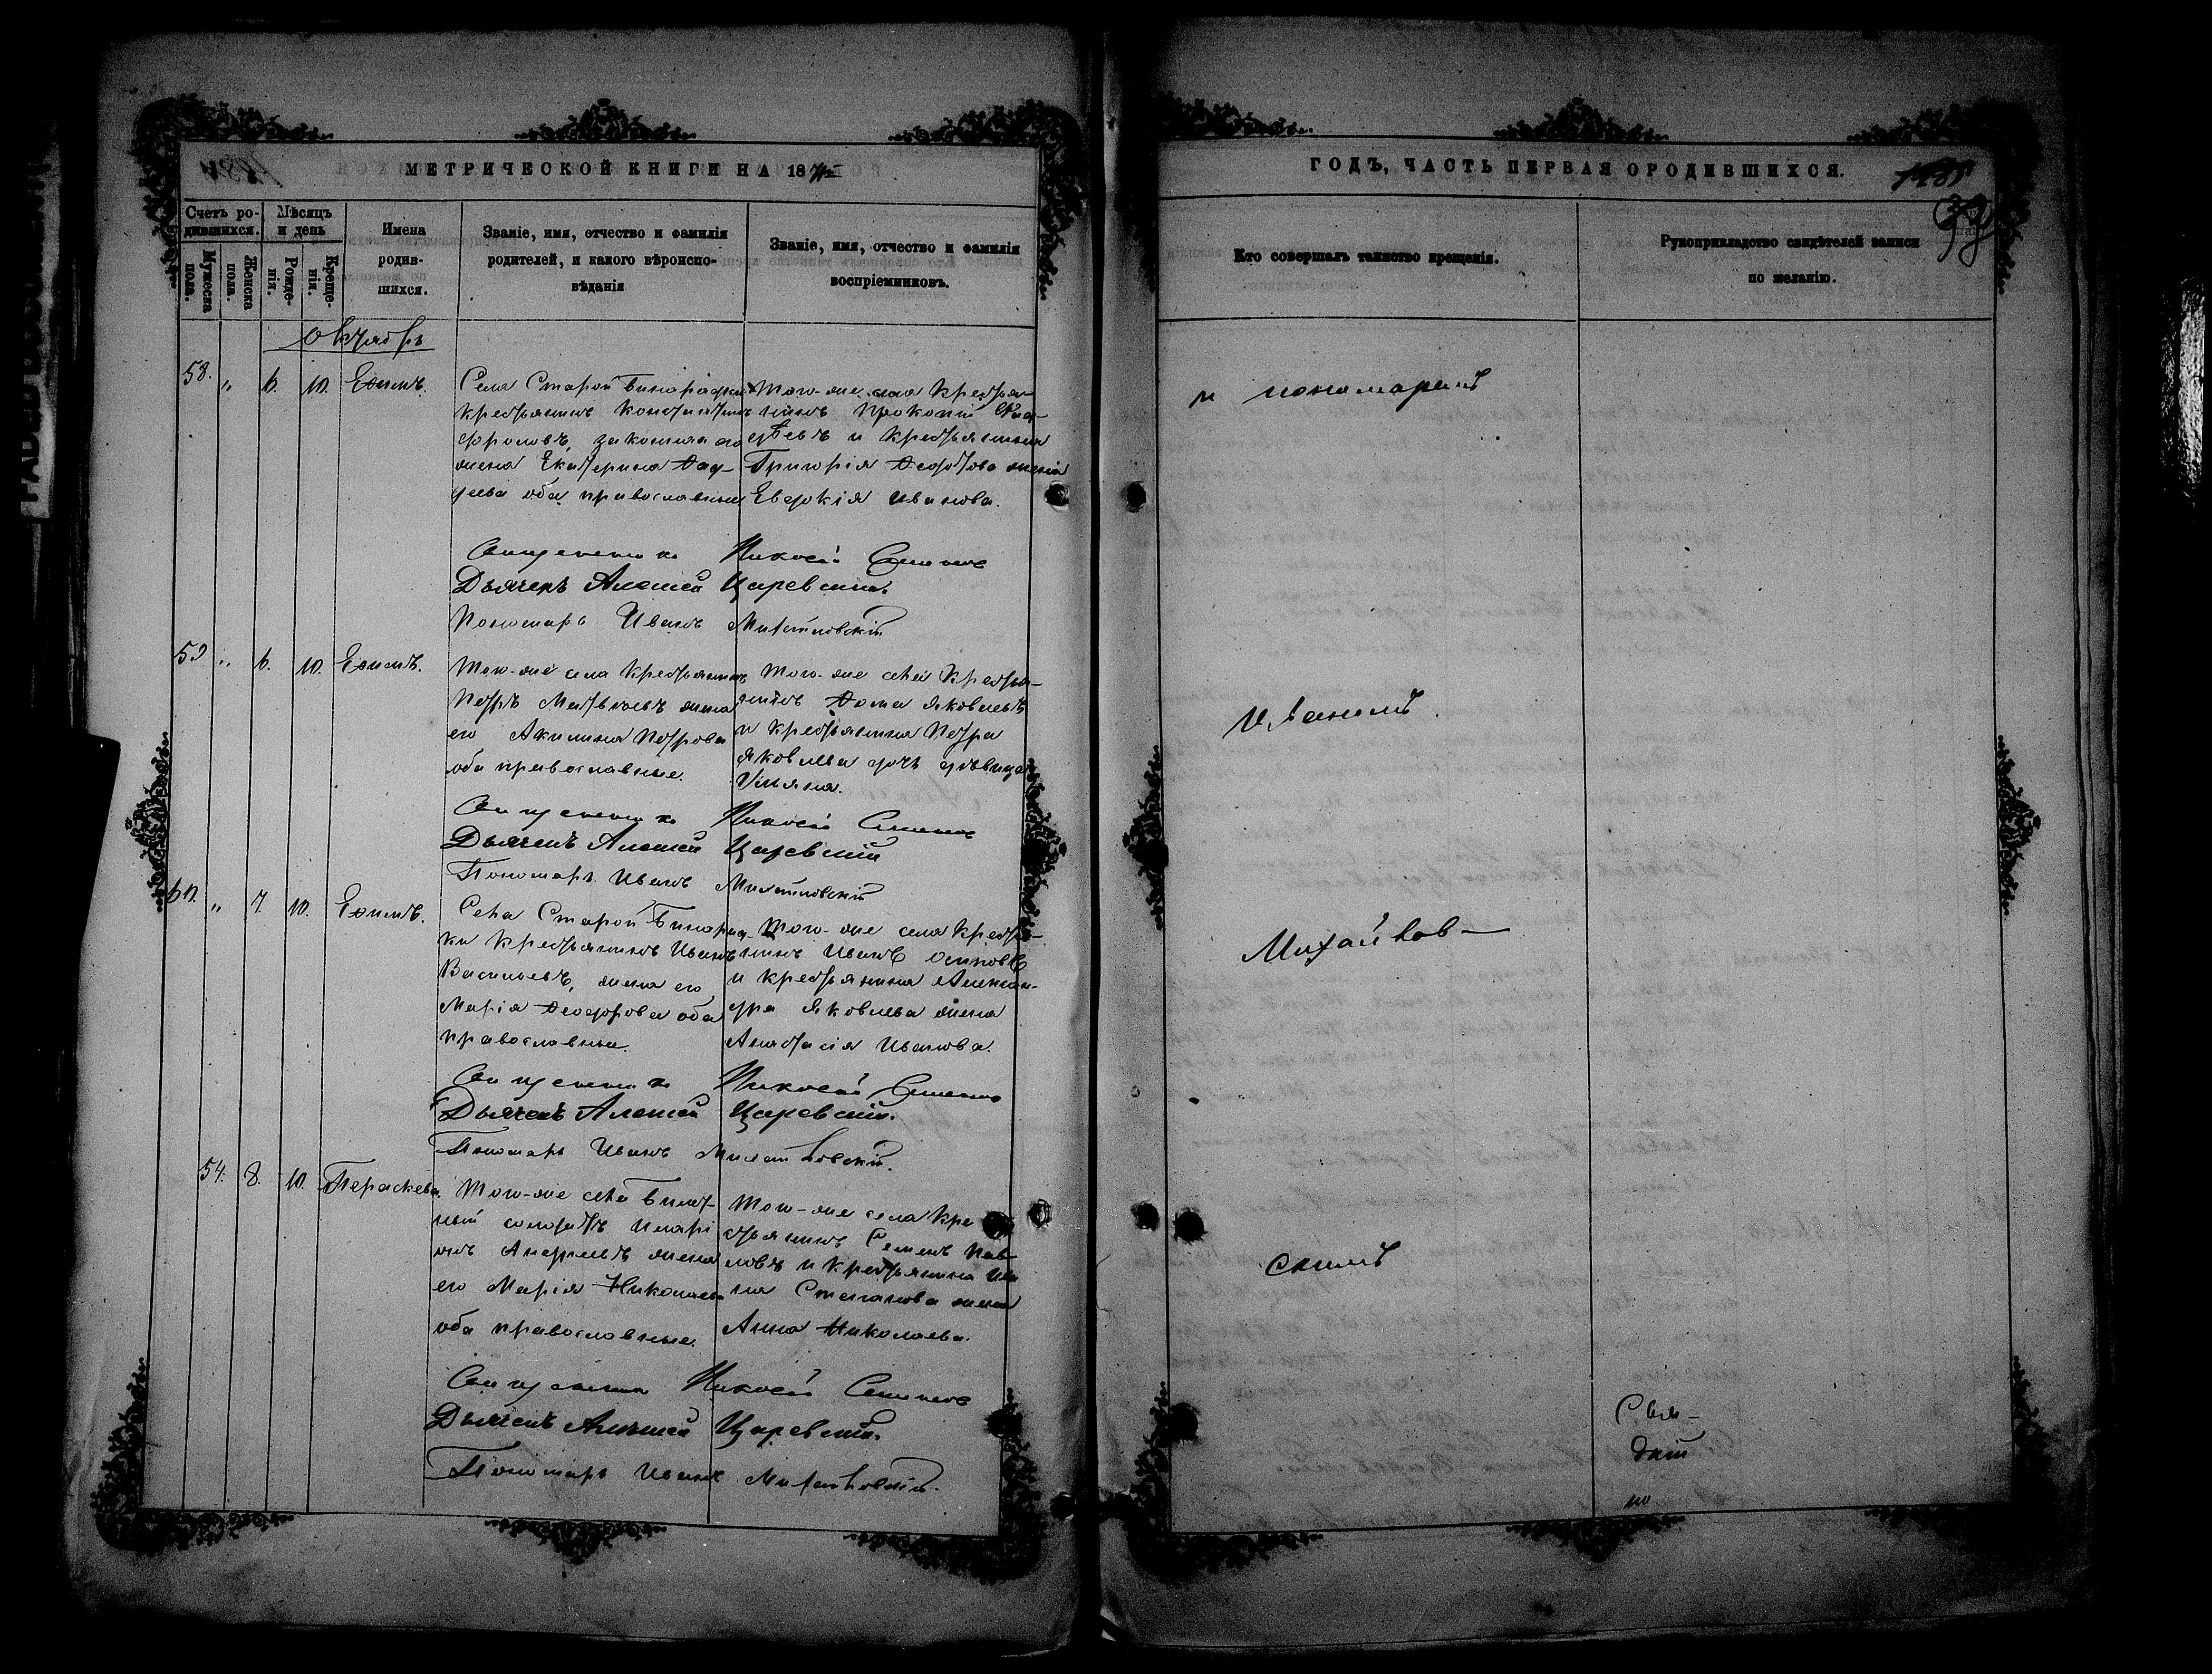 МЕТРИЧЕСКОЙ КНИГИ НА 18
Счетъ ро-
дившихся.
Мѣсяцъ
и день
Мужеска
пола.
Женска
пола.
Рожде-
нія.
Креще-
нія.
Имена
родив-
шихся.
Званіе, имя, отчество и фамилія
родителей, и какого вѣроиспо-
вѣданія
Званіе, имя, отчество и фамилія
воспріемниковъ.
Октябрь
58. " 6. 10. Ефимъ.
Села Старой Бинарадки
крестьянинъ Константинъ
законная его
жена Екатерина
оба православные
Того-же села Крестья-
нинъ Прокопій
и крестьянина
Григорія Федотова жена
Евдокія Иванова.
Священникъ Николай
Дьячекъ Алексей Царевскій.
Пономарь Иванъ
59 " 6. 10. Ефимъ.
Того-же села Крестьянинъ
Петръ Матвѣевъ жена
его Акилина Петрова
оба православные.
Того-же села Крестья-
нинъ Фома Яковлевъ
и крестьянина Петра
Яковлева дочь дѣвица
Ульяна.
Священникъ Николай
Дьячекъ Алексей Царевскій
Пономарь Иванъ
60. " 7. 10. Ефимъ.
Села Старой Бинарад-
ки крестьянинъ Иванъ
Васильевъ, жена его
Марія Феодорова оба
православные.
Того-же села Крестья-
нинъ Иванъ Осиповъ
и крестьянина Алексан-
дра Яковлева жена
Анастасія Иванова.
Священникъ Николай
Дьячекъ Алексей Царевскій.
Пономарь Иванъ
54. 8. 10. Параскева.
Того-же села Билет-
ный солдатъ Иларі-
онъ Андреевъ жена
его Марія Николаева
оба православные.
Того-же села Кре-
стьянинъ Семенъ Пав-
ловъ и Крестьянина Ива-
на Степанова жена
Анна Николаева.
Священникъ Николай
Дьячекъ Алексей Царевскій.
Пономарь Иванъ
ГОДЪ, ЧАСТЬ ПЕРВАЯ О РОДИВШИХСЯ.
Кто совершалъ таинство крещенія.
Рукоприкладство свидѣтелей записи
по желанію.
и пономаремъ
Иваномъ
Михайлов-
скимъ